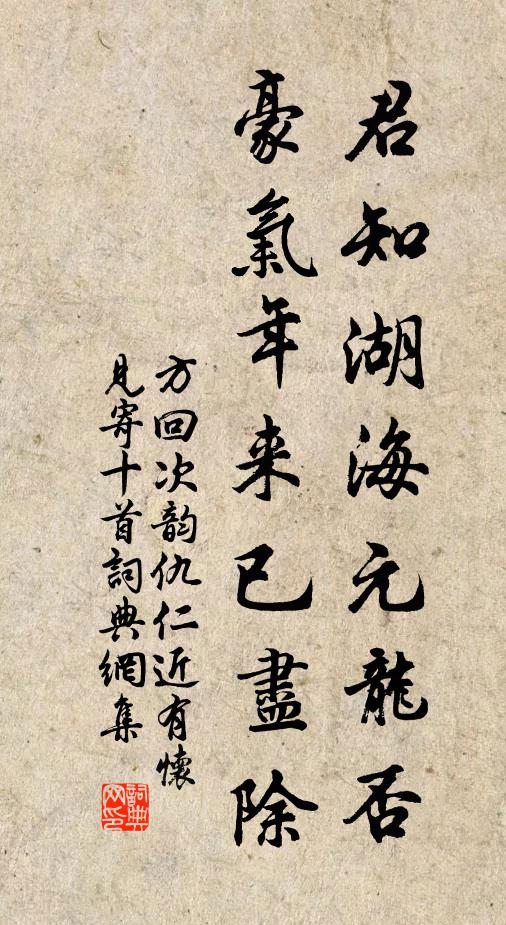 君知湖海元龍否
豪氣年来已盡除
方回次韵仇仁近有懷
見寄十首詞典網集
詞典網印